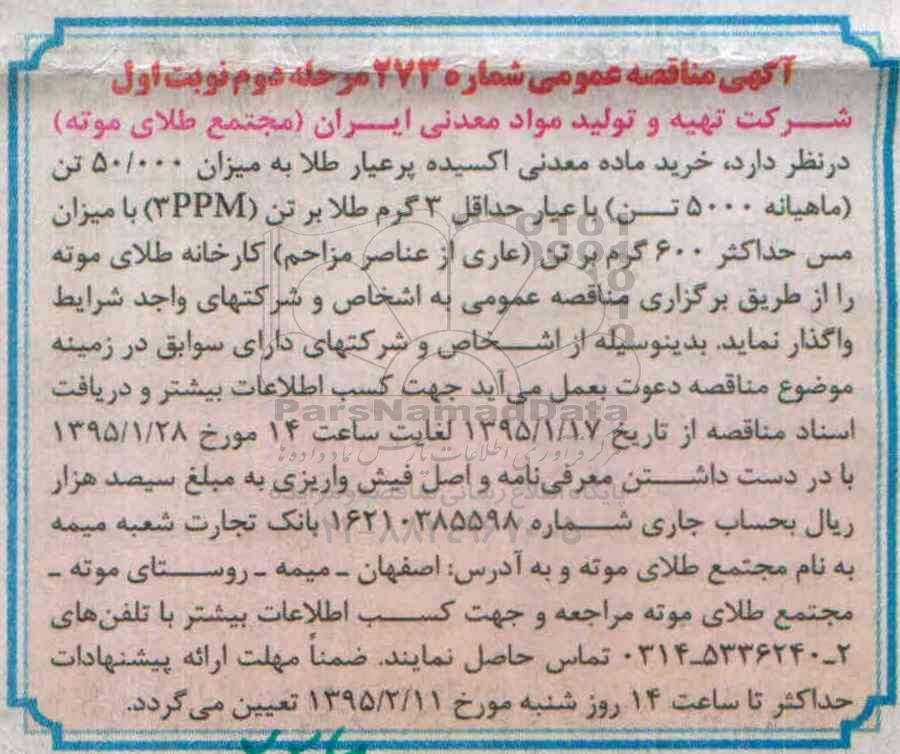 آگهی مناقصه عمومی شماره ۲۷۳ مرحله دوم نوبت اول
شرکت تهیه و تولید مواد معدنی ایران (مجتمع طلای موته)
درنظر دارد، خرید ماده معدنی اکسیده پرعیار طلا به میزان ۵۰/۰۰۰ تن
(ماهیانه ۵۰۰۰ تن) با عیار حداقل ۳ گرم طلا بر تن (۳PPM) با میزان
مس حداکثر ۶۰۰ گرم بر تن (عاری از عناصر مزاحم) کارخانه طلای موته
را از طریق برگزاری مناقصه عمومی به اشخاص و شرکتهای واجد شرایط
واگذار نماید. بدینوسیله از اشخاص و شرکتهای دارای سوابق در زمینه
موضوع مناقصه دعوت بعمل می‌آید جهت کسب اطلاعات بیشتر و دریافت
ParsNamadData
اسناد مناقصه از تاریخ ۱۳۹۵/۱/۱۷ لغایت ساعت ۱۴ مورخ ۱۳۹۵/۱/۲۸
با در دست داشتن معرفی‌نامه و اصل فیش واریزی به مبلغ سیصد هزار
ریال بحساب جاری شماره ۱۶۲۱۰۳۸۵۵۹۸ بانک تجارت شعبه میمه
به نام مجتمع طلای موته و به آدرس: اصفهان ـ میمه ـ روستای موته ـ
مجتمع طلای موته مراجعه و جهت کسب اطلاعات بیشتر با تلفن‌های
۲ـ۰۳۱۴ـ۵۳۳۶۲۴۰ تماس حاصل نمایند. ضمناً مهلت ارائه پیشنهادات
حداکثر تا ساعت ۱۴ روز شنبه مورخ ۱۳۹۵/۲/۱۱ تعیین می‌گردد.